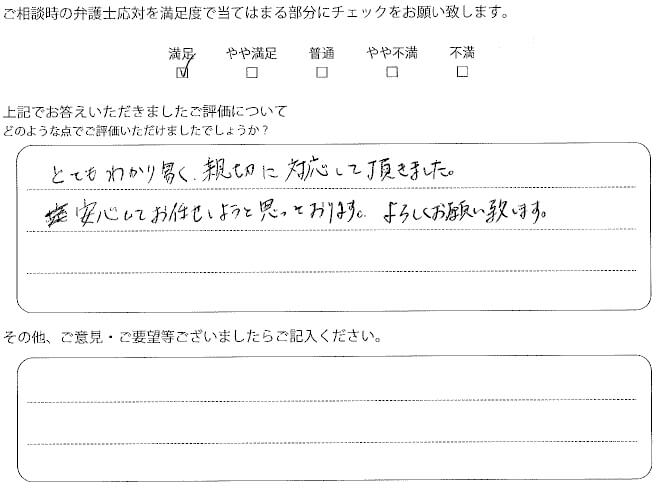 ご相談時の弁護士応対を満足度で当てはまる部分にチェックをお願い致します。
満足 やや満足 普通 やや不満 不満
☑ □ □ □ □
上記でお答えいただきましたご評価について
どのような点でご評価いただけましたでしょうか？
とてもわかり易く、親切に対応して頂きました。
安心してお任せしようと思っております。よろしくお願い致します。
その他、ご意見・ご要望等ございましたらご記入ください。